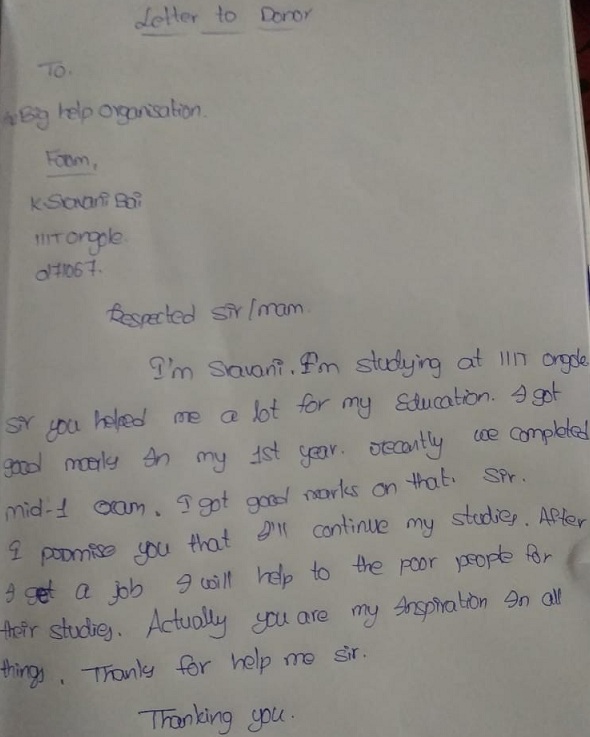 Letter to Donor
To.
Big help organisation.
From,
K. Sravani Bai
IIIT ongole
o171067.
Respected sir/mam
I'm Sravani. I'm studying at IIIT ongole
sir you helped me a lot for my Education. I got
good marks In my 1st year. recently we completed
mid-1 exam. I got good marks on that. Sir.
I promise you that I'll continue my studies. After
I get a job I will help to the poor people for
their studies. Actually you are my Inspiration In all
things. Thanks for help me sir.
Thanking you.